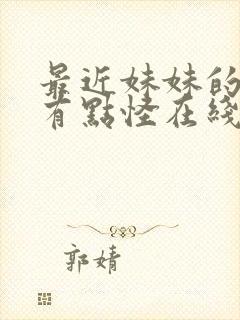 最近妹妹的
有點怪在綫
郭婧